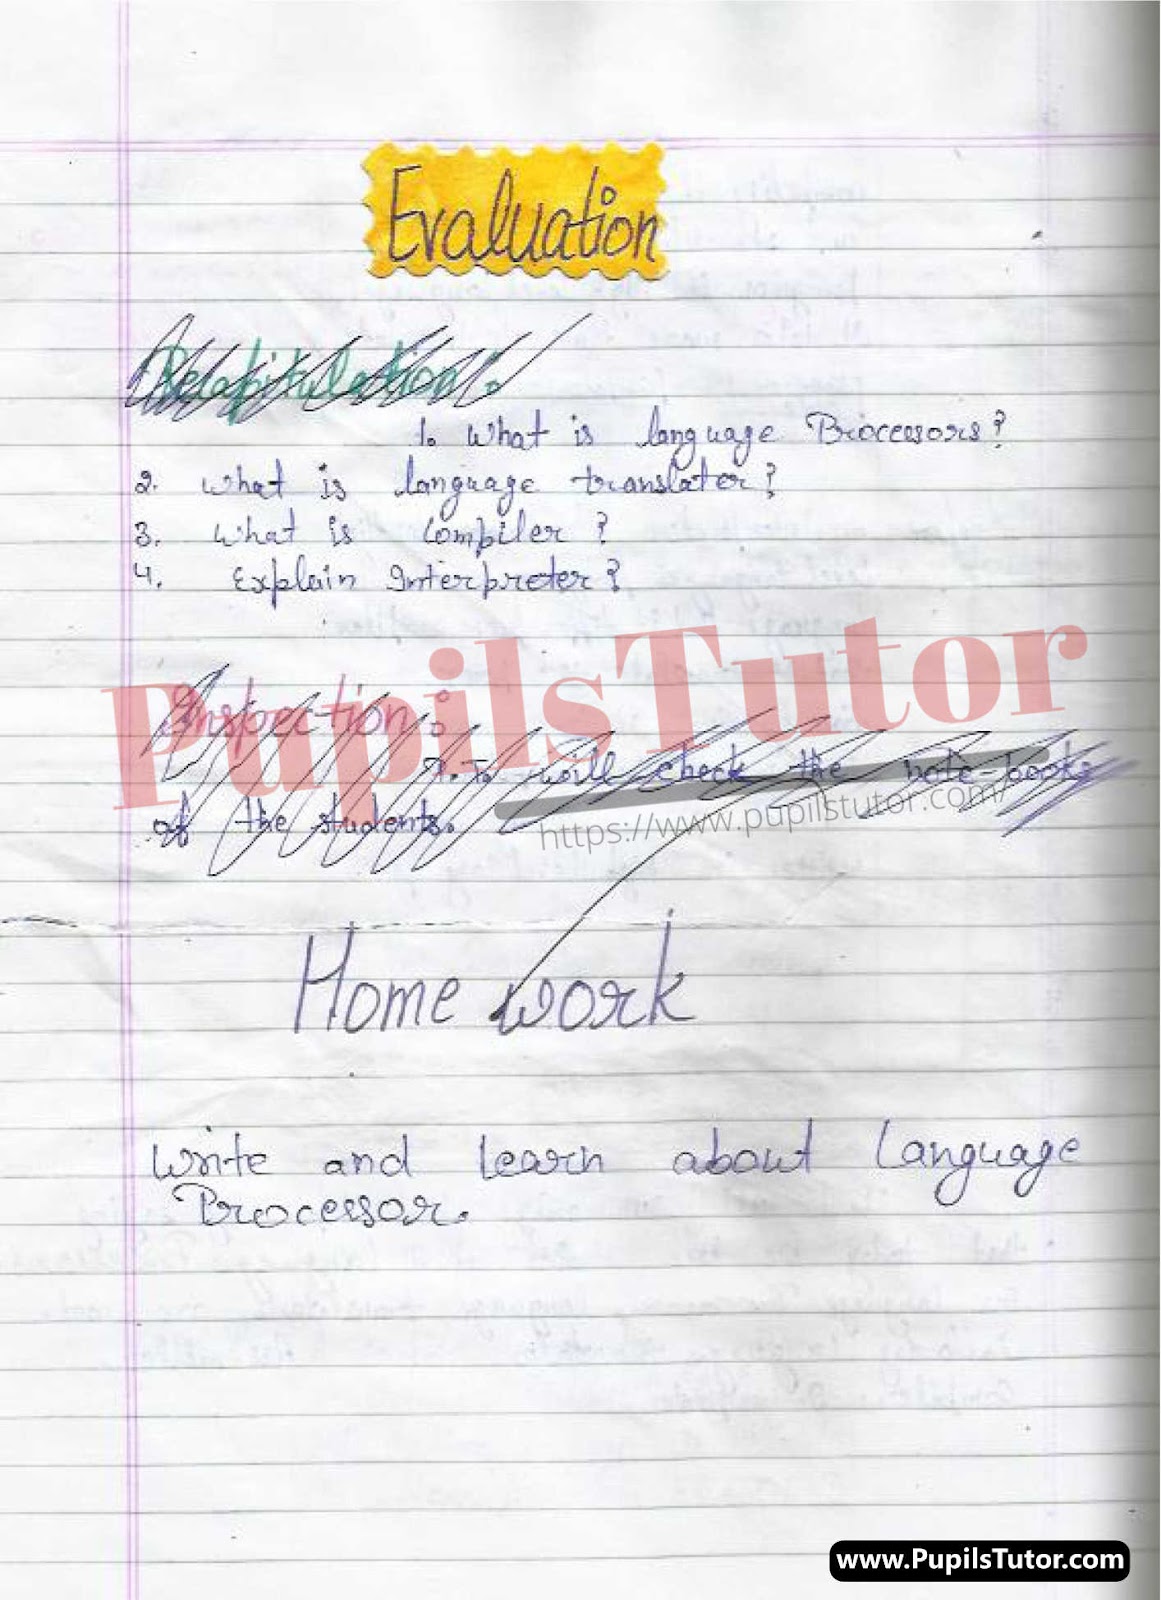 Evaluation
Recapitulation :
1. What is language Processors?
2. What is language translator?
3. What is Compiler ?
4. Explain Interpreter?
PupilsTutor
Inspection :
P.T. will check the note-books
of the students.
https://www.pupilstutor.com/
Home work
Write and learn about Language
Processor.
www.PupilsTutor.com